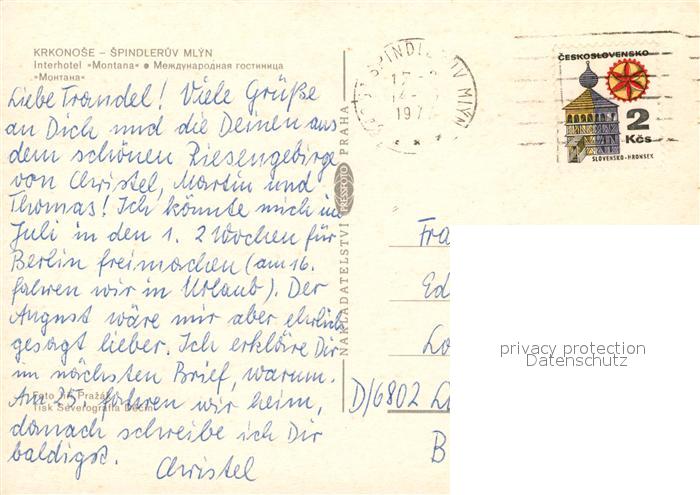 KRKONOŠE – ŠPINDLERŮV MLÝN
Interhotel »Montana« ● Международная гостиница
»Монтана«
Liebe Traudel! Viele Grüße
an Dich und die Deinen aus
dem schönen Riesengebirge
von Christel, Martin und
Thomas! Ich könnte mich im
Juli in den 1. 2 Wochen für
Berlin freimachen (am 16.
fahren wir in Urlaub). Der
August wäre mir aber ehrlich
gesagt lieber. Ich erkläre Dir
im nächsten Brief, warum.
Am 25. fahren wir heim,
danach schreibe ich Dir
baldigst.
Christel
Foto Jiří Pražák
Tisk Severografia Děčín
NAKLADATELSTVÍ PRESSFOTO PRAHA
ŠPINDLERŮV MLÝN
ČESKOSLOVENSKO
2
Kčs
SLOVENSKO-HRONSEK
Fra
Ed
Lo
D/6802
B
privacy protection
Datenschutz